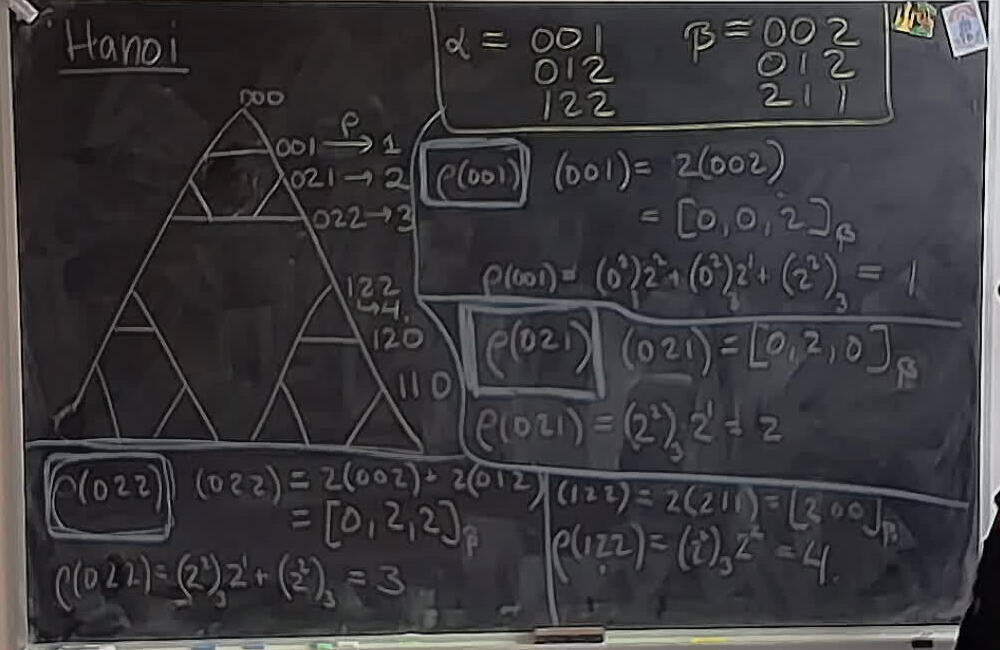 Hanoi
000
001 —ρ→ 1
021 → 2
022 → 3
122
→ 4.
120
110
α = 001
012
122
β = 002
012
211
ρ(001) (001) = 2(002)
= [0,0,2]β
ρ(001) = (0²)₃2² + (0²)₃2¹ + (2²)₃ = 1
ρ(021) (021) = [0,2,0]β
ρ(021) = (2²)₃ 2¹ = 2
ρ(022) (022) = 2(002) + 2(012)
= [0,2,2]β
ρ(022) = (2²)₃2¹ + (2²)₃ = 3
(122) = 2(211) = [200]β
ρ(122) = (2²)₃2² = 4.